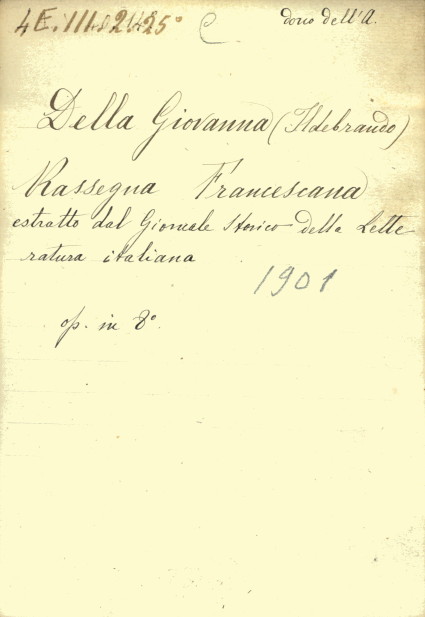 4E. III. 2425° C dono dell'A.
Della Giovanna (Ildebrando)
Rassegna Francescana
estratto dal Giornale Storico della Lette
ratura italiana
1901
op. in 8°.